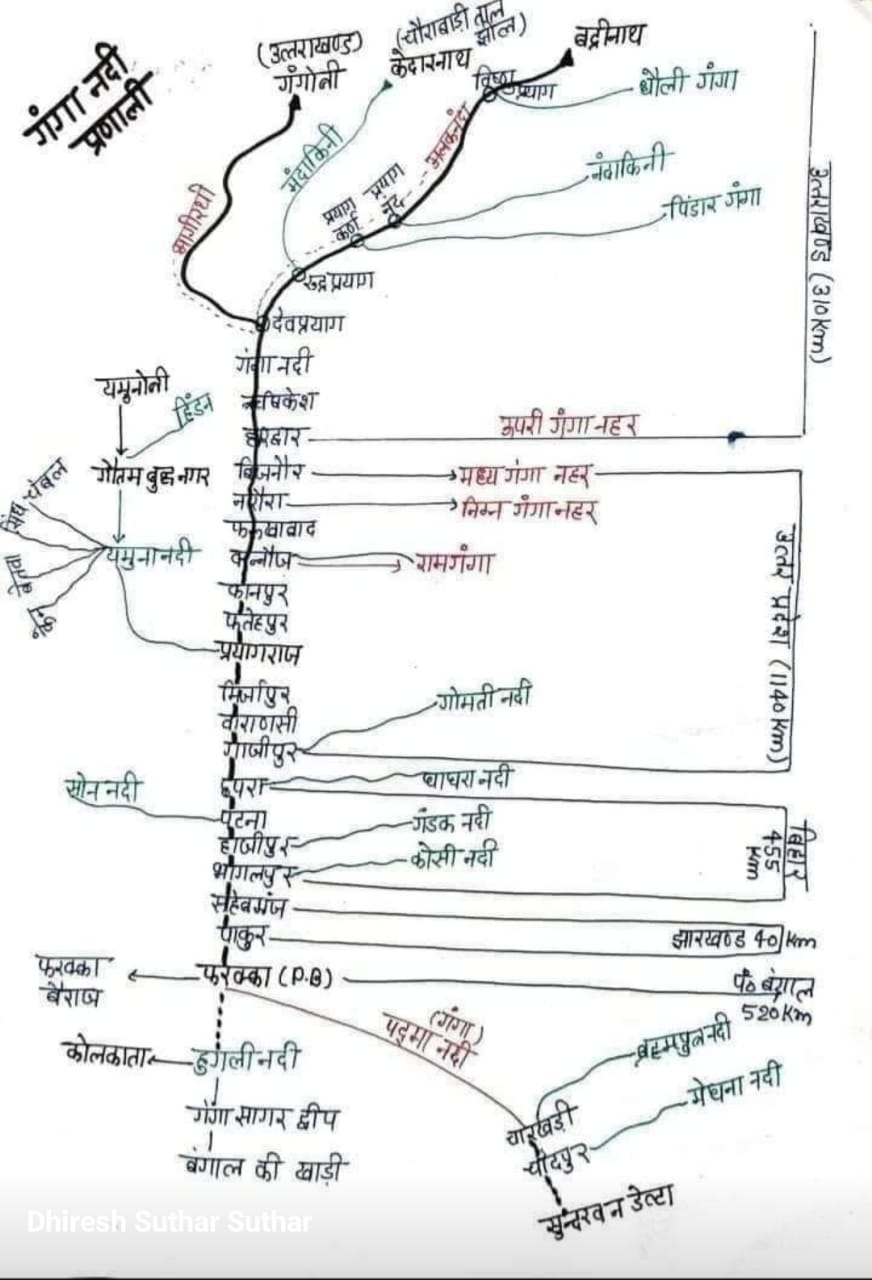 गंगा नदी
प्रणाली
(उत्तराखण्ड)
गंगोत्री
(चौराबाड़ी ताल
झील)
केदारनाथ
बद्रीनाथ
विष्णु
प्रयाग
धौली गंगा
अलकनंदा
मंदाकिनी
नंदाकिनी
पिंडार गंगा
प्रयाग
नंद
प्रयाग
कर्ण
भागीरथी
रुद्रप्रयाग
देवप्रयाग
उत्तराखण्ड (310 km)
गंगा नदी
यमुनोत्री
हिंडन
ऋषिकेश
हरिद्वार
ऊपरी गंगा नहर
गौतम बुद्ध नगर
बिजनौर
मध्य गंगा नहर
नरौरा
निम्न गंगा नहर
फर्रुखाबाद
चंबल
सिंध
बेतवा
केन
यमुना नदी
कन्नौज
रामगंगा
कानपुर
फतेहपुर
प्रयागराज
उत्तर प्रदेश (1140 km)
मिर्जापुर
गोमती नदी
वाराणसी
गाजीपुर
छपरा
घाघरा नदी
सोन नदी
पटना
गंडक नदी
हाजीपुर
कोसी नदी
भागलपुर
बिहार
455
km
साहेबगंज
पाकुर
झारखण्ड 40 km
फरक्का
बैराज
फरक्का (P.B)
प० बंगाल
520 Km
(गंगा)
पद्मा नदी
ब्रह्मपुत्र नदी
कोलकाता
हुगली नदी
मेघना नदी
गंगा सागर द्वीप
चारखड़ी
चाँदपुर
बंगाल की खाड़ी
सुन्दरवन डेल्टा
Dhiresh Suthar Suthar